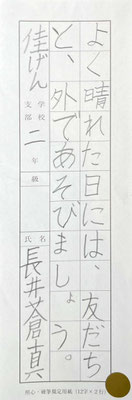 よく晴れた日には、友だち
と、外であそびましょう。
佳げん
学校
支部
二年級
氏名
長井蒼真
用心・硬筆規定用紙(12字×2行)